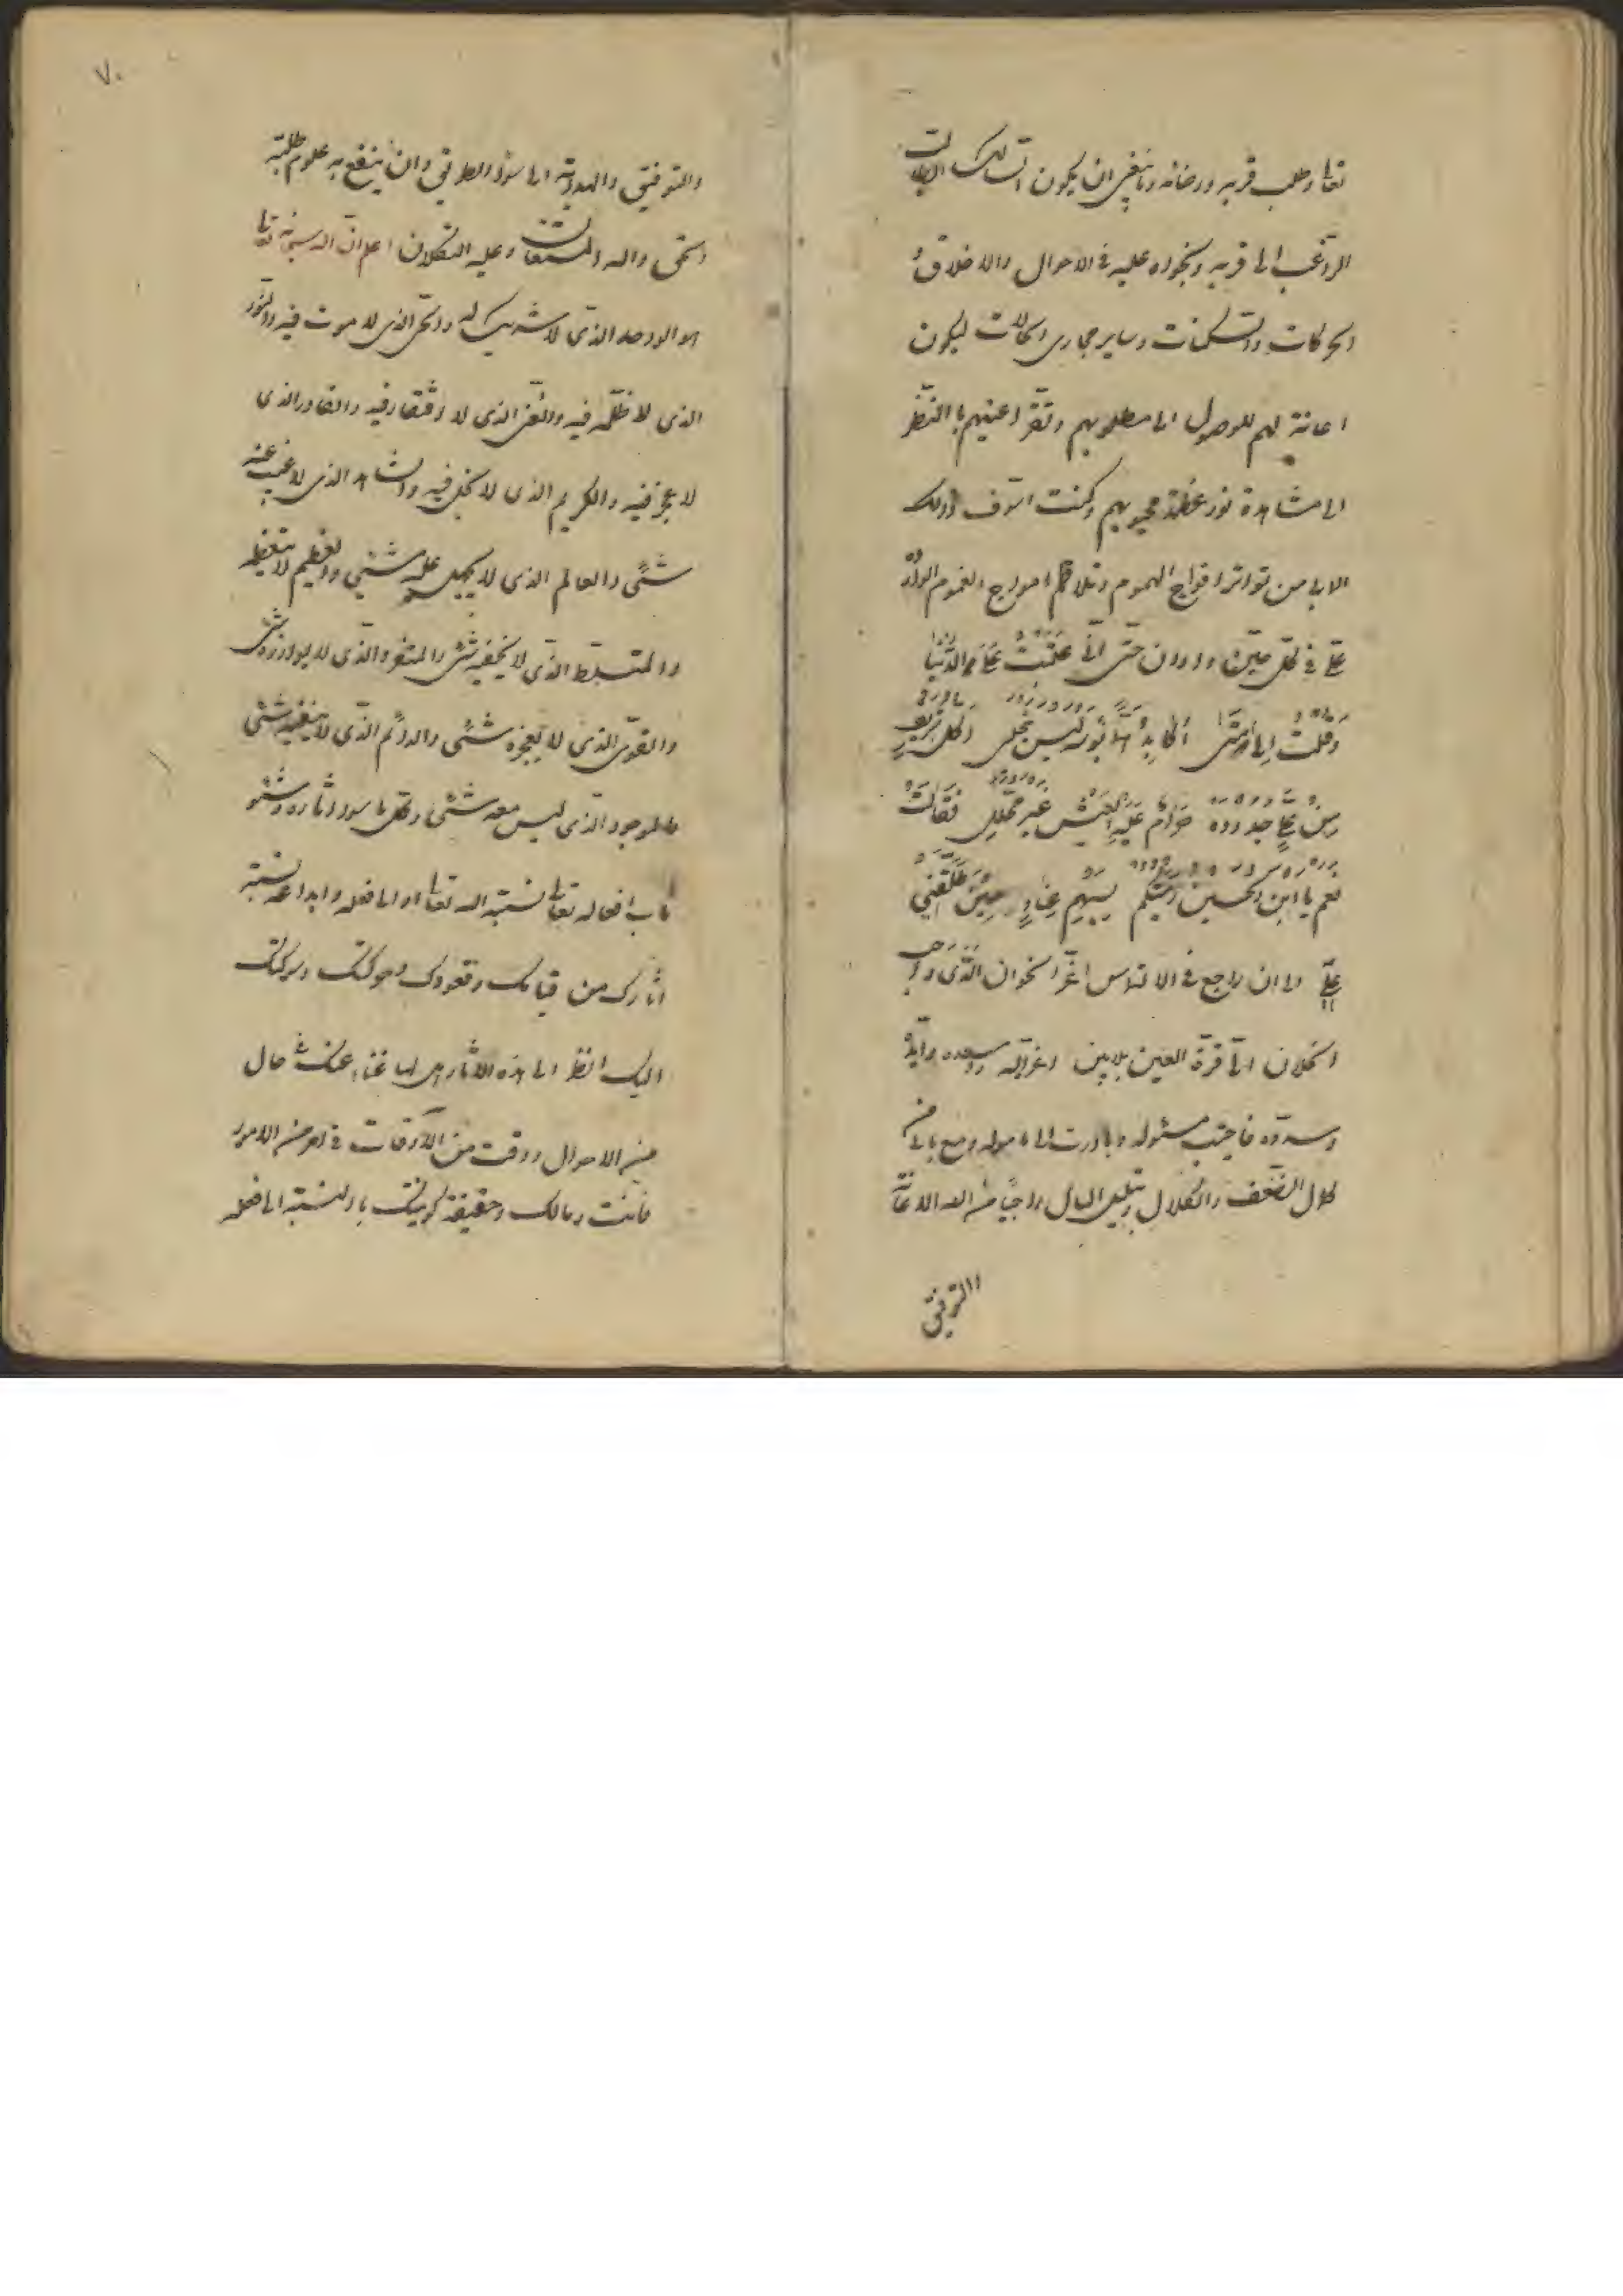 تعالى وطلب قربه ورضائه وما ينبغي ان يكون السالك اليه
الراغب الى قربه ونحوه عليه في الاحوال والاخلاق و
الحركات والسكنات وساير مجاري الحالات ليكون
اعانة لهم للوصول الى مطلوبهم وتقر اعينهم بالنظر
الى مشاهدة نور عظمة محبوبهم وكنت اسوف ذلك
الابي من تواتر افواج الهموم وتلاطم امواج الغموم الواردة
علي في كل حين واوان حتى اني عتبت على الدنيا
وقلت الى متى اكابد بؤسه ليس ينجلي اكل شريف
من علي جدوده حرام عليه العيش غير محلل فقالت
نعم يا ابن الحسين رميتكم بسهم عناد حين طلقني
علي الى ان راجع في الالتماس اعز الاخوان الذي
الخلان الا قرة العين بلا مين اعزه الله واسعده وايده
وسدده فاجبت مسئوله وبادرت الى ماموله ومع ما بي من
كلال الضعف والكلال وتبلبل البال راجيا من الله الاعانة
والتوفيق
٧٠
والتوفيق والهداية الى سواء الطريق وان ينفع به طلبة
الحق والله المستعان وعليه التكلان اعلم ان الله سبحانه تعالى
هو الواحد الذي لا شريك له والحي الذي لا موت فيه والنور
الذي لا ظلمة فيه والغني الذي لا افتقار فيه والقادر الذي
لا عجز فيه والكريم الذي لا بخل فيه والشاهد الذي لا يغيب عنه
شئ والعالم الذي لا يجهل عليه شئ والعظيم
والمتسلط الذي لا يخفيه شئ والمتفرد الذي لا يوازره شئ
والقوي الذي لا يعجزه شئ والدائم الذي لا يفنيه شئ
فالموجود الذي ليس معه شئ وكل ما سواه اثاره
باب افعاله تعالى نسبته اليه تعالى او الى فعله وابداعه نسبة
اثارك من قيامك وقعودك وحركتك وسكونك
اليك انظر الى هذه الاثار هل لها غناء عنك في حال
من الاحوال ووقت من الاوقات في امر من الامور
فانت ومالك وحقيقة كونيتك بالنسبة الى فعله